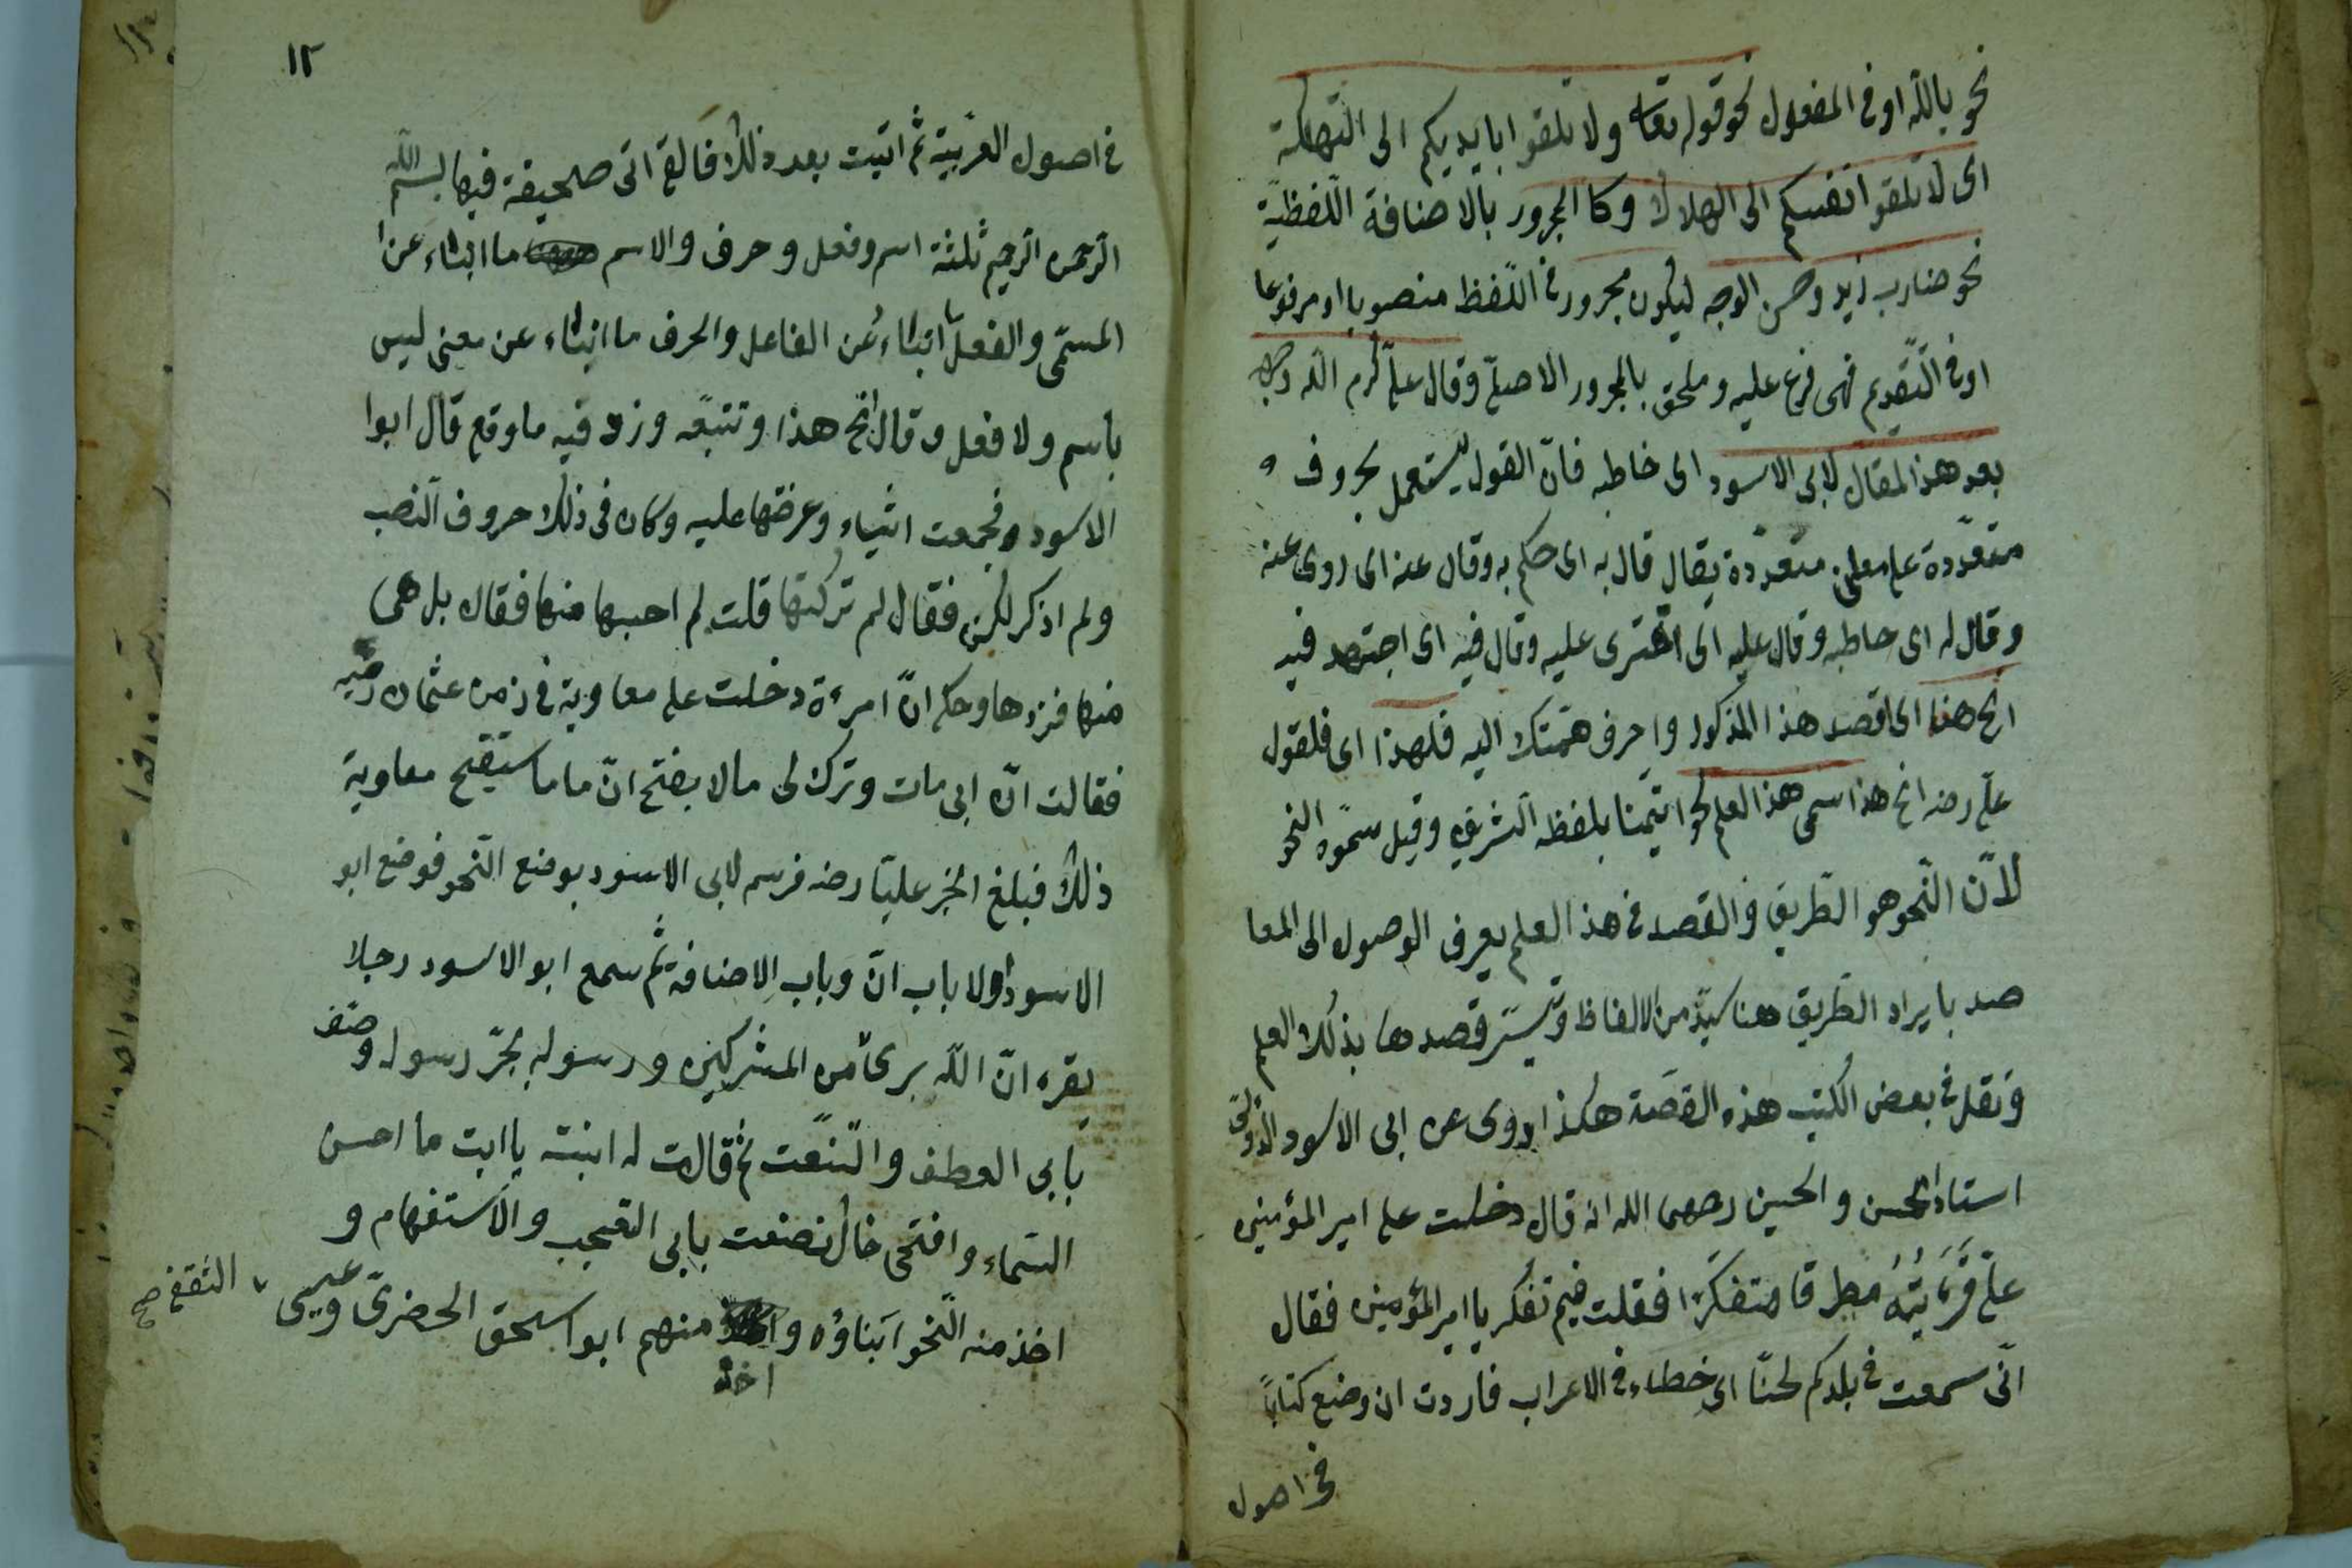 نحو بالله او فى المفعول نحو قوله تعا ولا تلقوا بايديكم الى التهلكة
اى لا تلقوا انفسكم الى الهلاك وكا المجرور بالاضافة اللفظية
نحو ضارب زيد وحسن الوجه ليكون مجرور فى اللفظ منصوبا او مرفوعا
او فى التقديم فهى فرع عليه وملحق بالمجرور الاصلى وقال على كرم الله وجهه
بعد هذا المقال لابى الاسود اى خاطبه فان القول يستعمل بحروف
متعددة على معانى متعددة يقال قال به اى حكم به وقال عنه اى روى عنه
وقال له اى خاطبه وقال عليه اى افترى عليه وقال فيه اى اجتهد فيه
انح هذا اى اقصد هذا المذكور واحرف همتك اليه فلهذا اى فلقول
على رضه انح هذا سمى هذا العلم نحوا تيمنا بلفظه الشريف وقيل سموه النحو
لان النحو هو الطريق والقصد فى هذا العلم يعرف الوصول الى المعا
صد بايراد الطريق من الالفاظ وتيسر قصدها بذلك العلم
ونقل فى بعض الكتب هذه القصة هكذا روى عن ابى الاسود الدولى
استاذ الحسن والحسين رحمهما الله انه قال دخلت على امير المؤمنين
على فرايته مطرقا متفكرا فقلت فيم تفكر يا امير المؤمنين فقال
انى سمعت فى بلدكم لحنا اى خطاء فى الاعراب فاردت ان وضع كتابا
فى اصول
١٢
فى اصول العربية ثم اتيت بعد ذلك فالقى الى صحيفة فيها بسم الله
الرحمن الرحيم ثلثة اسم وفعل وحرف والاسم ما انباء عن
المسمى والفعل ما انباء عن الفاعل والحرف ما انباء عن معنى ليس
باسم ولا فعل وقال انح هذا وتتبعه وزد فيه ما وقع قال ابوا
الاسود فجمعت اشياء وعرضتها عليه وكان فى ذلك حروف النصب
ولم اذكر لكن فقال لم تركتها قلت لم احسبها منها فقال بل هى
منها فزدها وحكى ان امرءة دخلت على معاوية فى زمن عثمان رضيه
فقالت ان ابى مات وترك لى مالا بفتح ان ما ما ستقبح معاوية
ذلك فبلغ الخبر عليا رضه فرسم لابى الاسود بوضع النحو فوضع ابو
الاسود اولا باب ان وباب الاضافة ثم سمع ابو الاسود رجلا
يقره ان الله برئ من المشركين ورسوله بجر رسول وصنف
بابى العطف والنعت ثم قالت له ابنته يا ابت ما احسن
السماء وافتحى فاك فصنعت بابى التعجب والاستفهام و
اخذ منه النحو ابناؤه و اخذ منهم ابو اسحق الحضرى وعيسى
الثقفى صح